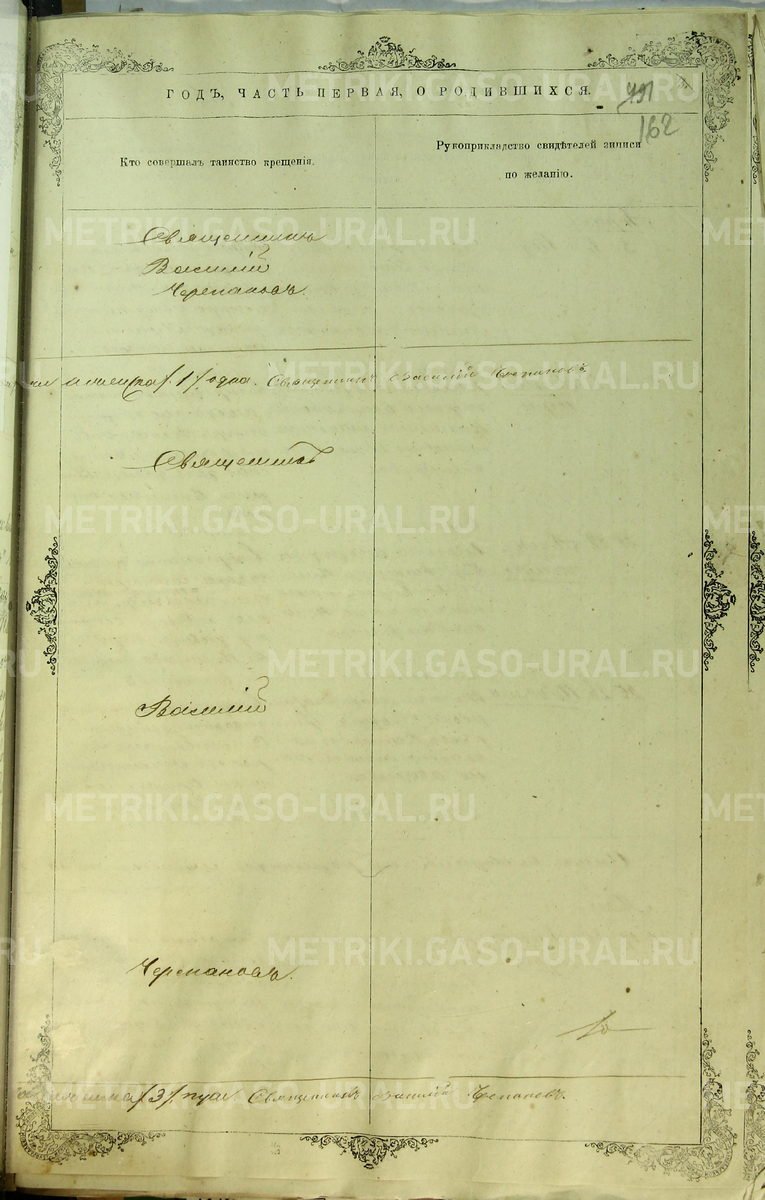 ГОДЪ, ЧАСТЬ ПЕРВАЯ, О РОДИВШИХСЯ.
162
Кто совершалъ таинство крещенія.
Рукоприкладство свидѣтелей записи
по желанію.
Священникъ
Василій
Черепановъ.
/1/ одна. Священникъ Василій Черепановъ
Священникъ
Василій
Черепановъ.
/3/ Священникъ Василій Черепановъ.
METRIKI.GASO-URAL.RU